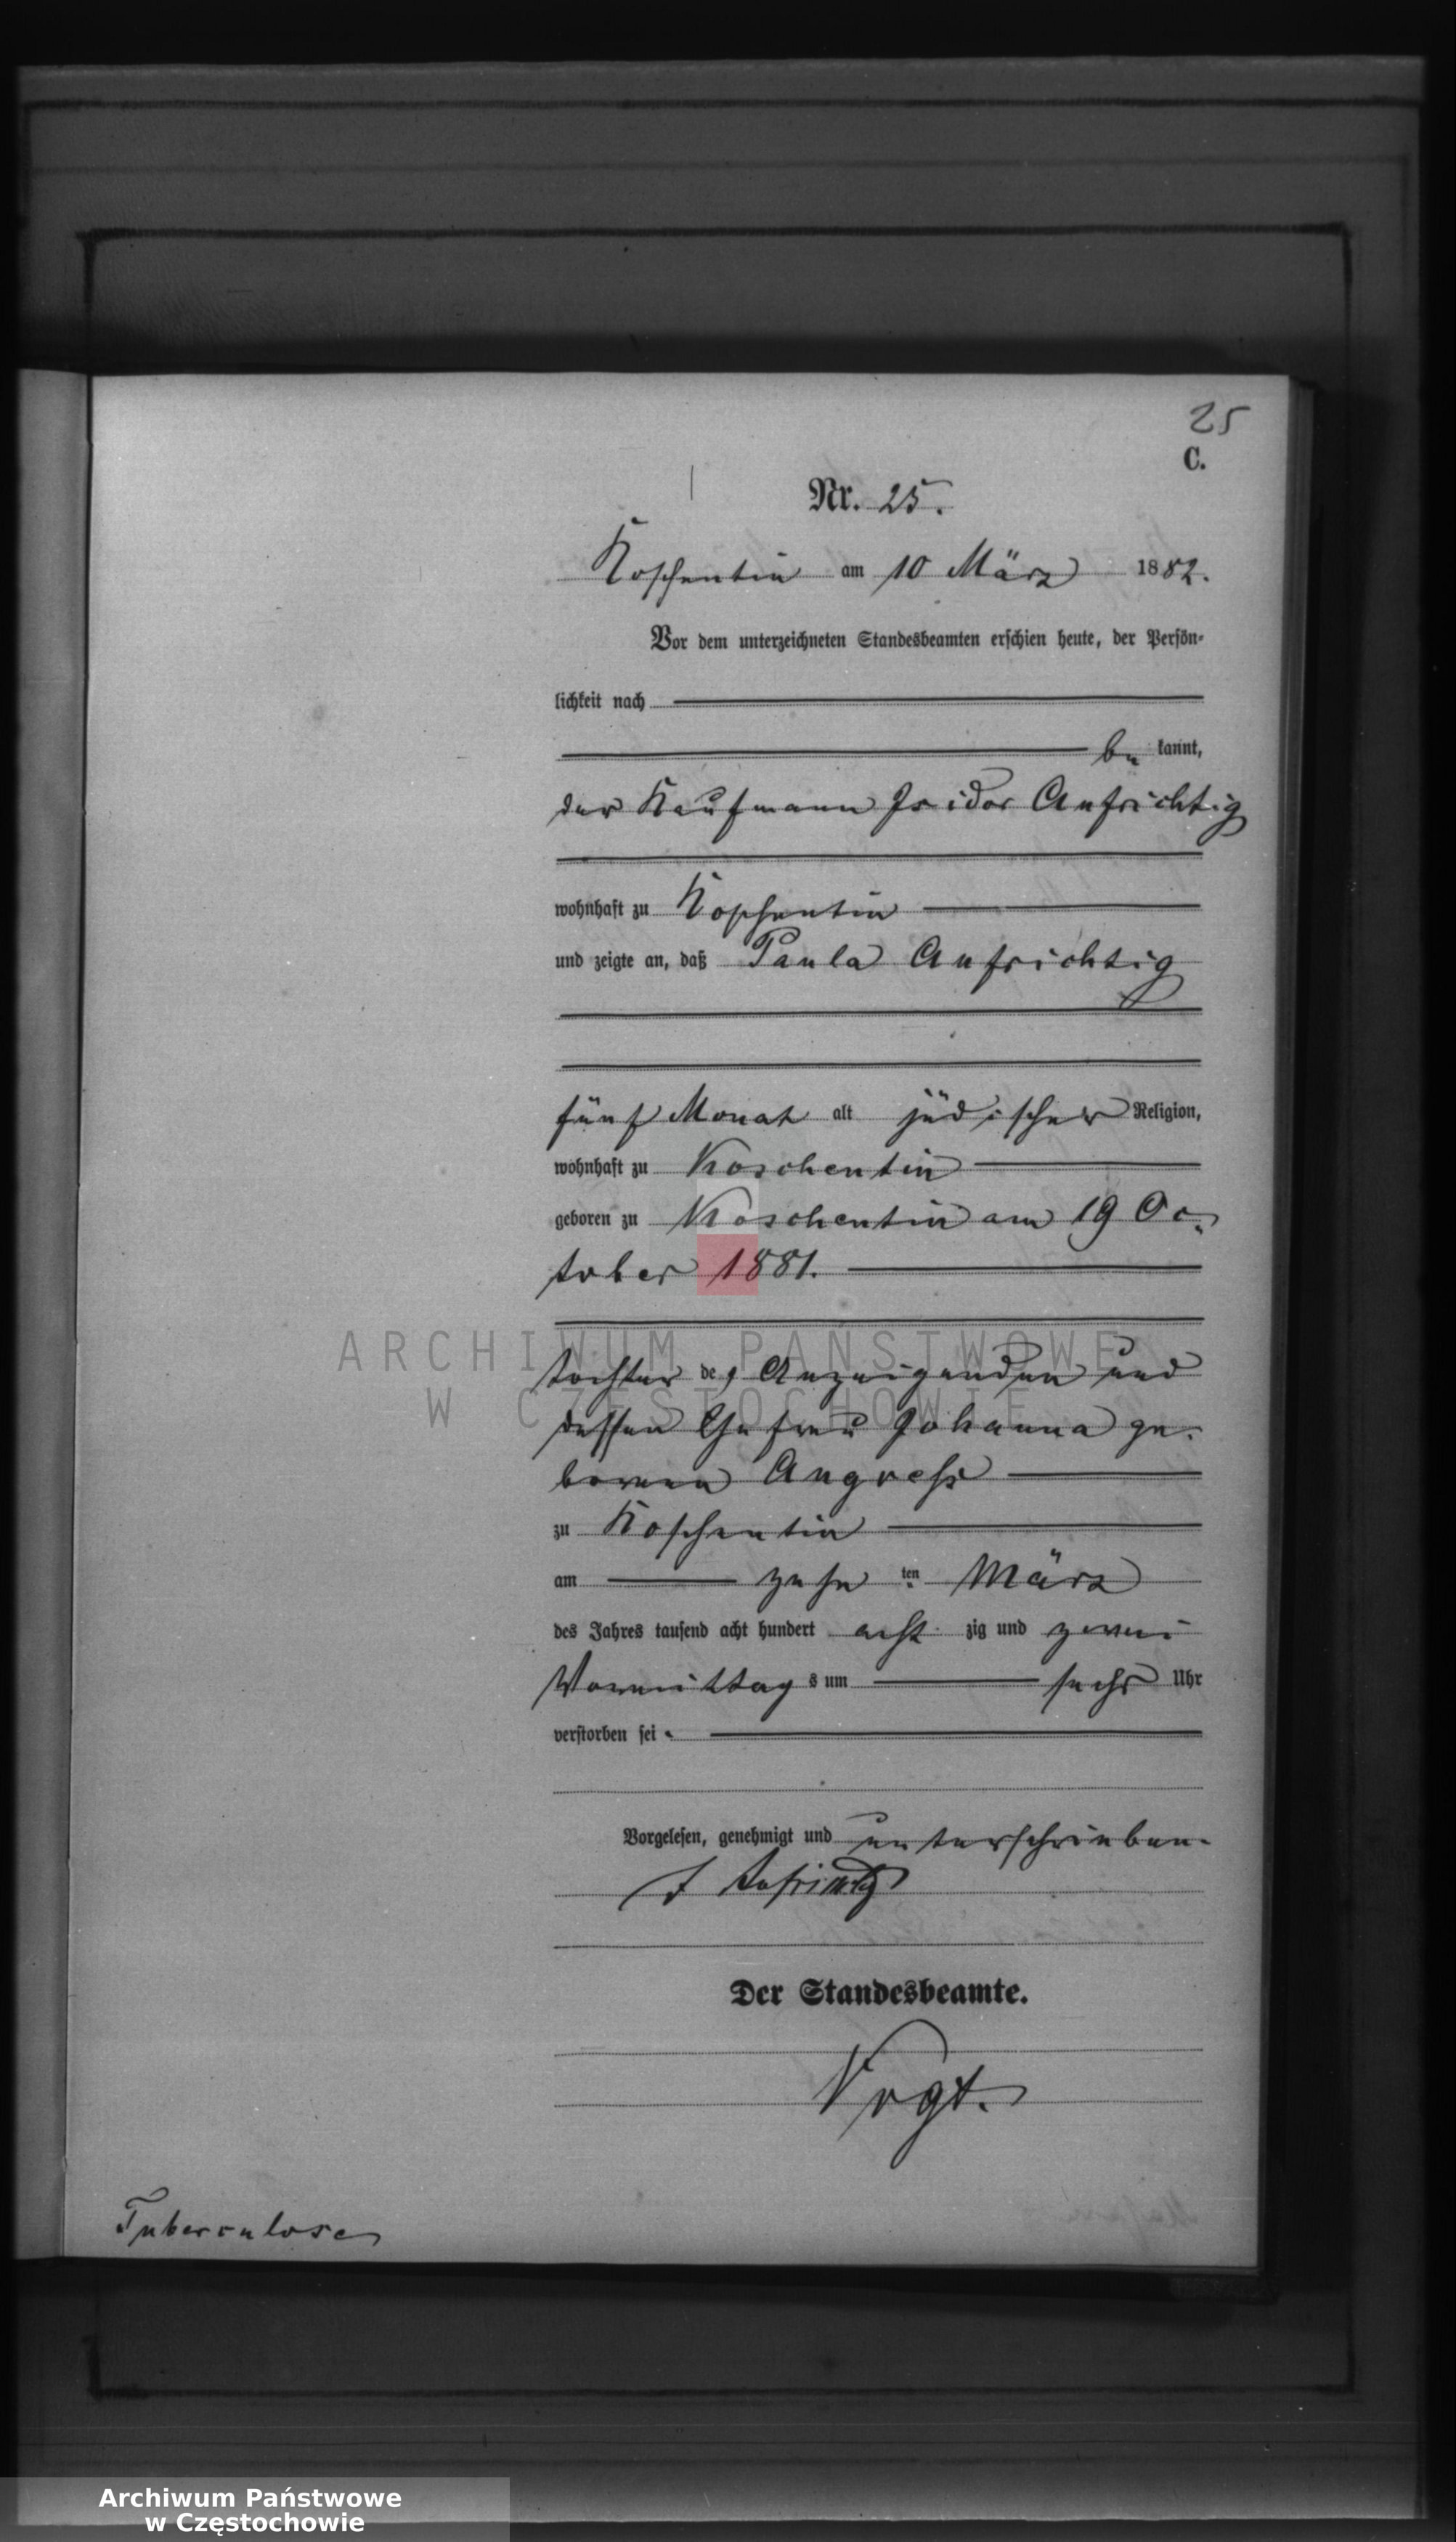 25
C.
Nr. 25.
Koschentin am 10 März 1882.
Vor dem unterzeichneten Standesbeamten erschien heute, der Persön-
lichkeit nach
be kannt,
der Kaufmann Isidor Aufrichtig
wohnhaft zu Koschentin
und zeigte an, daß Paula Aufrichtig
fünf Monat alt jüdischer Religion,
wohnhaft zu Koschentin
geboren zu Koschentin am 19 Oc-
tober 1881.
ARCHIWUM PAŃSTWOWE
tochter des Anzeigenden und
W CZĘSTOCHOWIE
dessen Ehefrau Johanna ge-
borenen Angress
zu Koschentin
am zehn ten März
des Jahres tausend acht hundert acht zig und zwei
Vormittag s um sechs Uhr
verstorben sei.
Vorgelesen, genehmigt und unterschrieben.
I Aufrichtig
Der Standesbeamte.
Vogt.
Tuberculose
Archiwum Państwowe
w Częstochowie